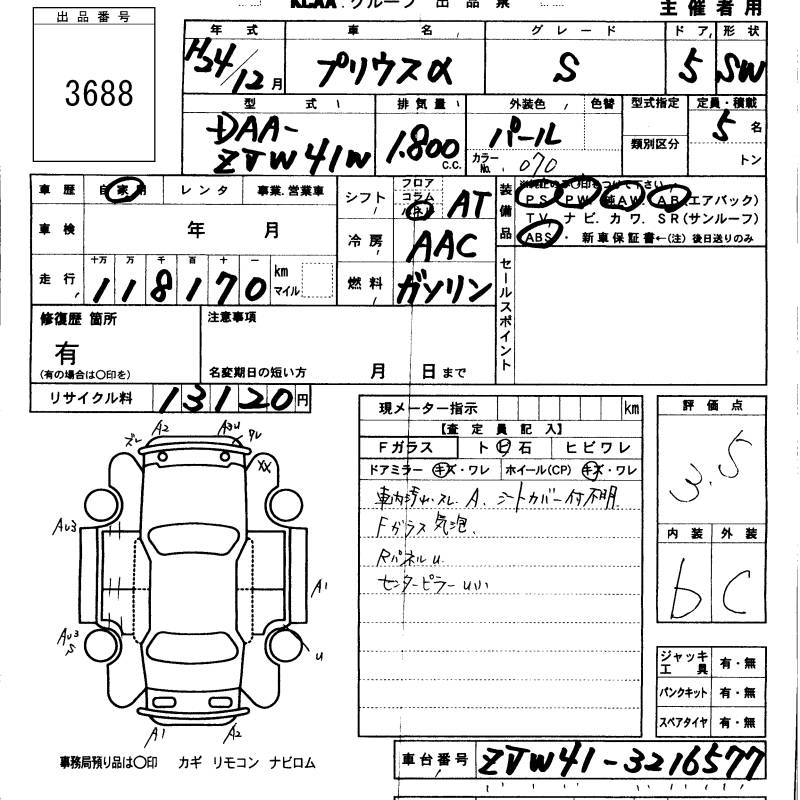 KCAA グループ 出品票
主催者用
出品番号
3688
年式 車名 グレード ドア 形状
H24/12月 プリウスα S 5 SW
型式 排気量 外装色 色替 型式指定 定員・積載
DAA- 1.800 パール 5名
ZVW41W C.C. カラーNo. 070 類別区分 トン
車歴 自家用 レンタ 事業.営業車
シフト フロア コラム パネル AT
装備品 ※純正のみ〇印をつけて下さい
PS PW 純AW AB(エアバック)
TV. ナビ. カワ. SR(サンルーフ)
ABS・新車保証書←(注)後日送りのみ
車検 年 月
冷房 AAC
走行 十万 万 千 百 十 一
118170 km マイル
燃料 ガソリン
セールスポイント
修復歴 箇所
有
(有の場合は〇印を)
注意事項
名変期日の短い方 月 日まで
リサイクル料 13120円
現メーター指示 km
評価点
3.5
【査定員記入】
Fガラス トビ石 ヒビワレ
ドアミラー キズ・ワレ ホイール(CP) キズ・ワレ
車内汚れ.スレ. A. シートカバー付不明
Fガラス気泡.
Rパネルu.
センターピラーu小
内装 外装
b C
ズレ A2 A3u
XX
Au3
A1
Au3
S
u
A1 A2
ジャッキ工具 有・無
パンクキット 有・無
スペアタイヤ 有・無
事務局預り品は〇印 カギ リモコン ナビロム
車台番号 ZVW41-3216577